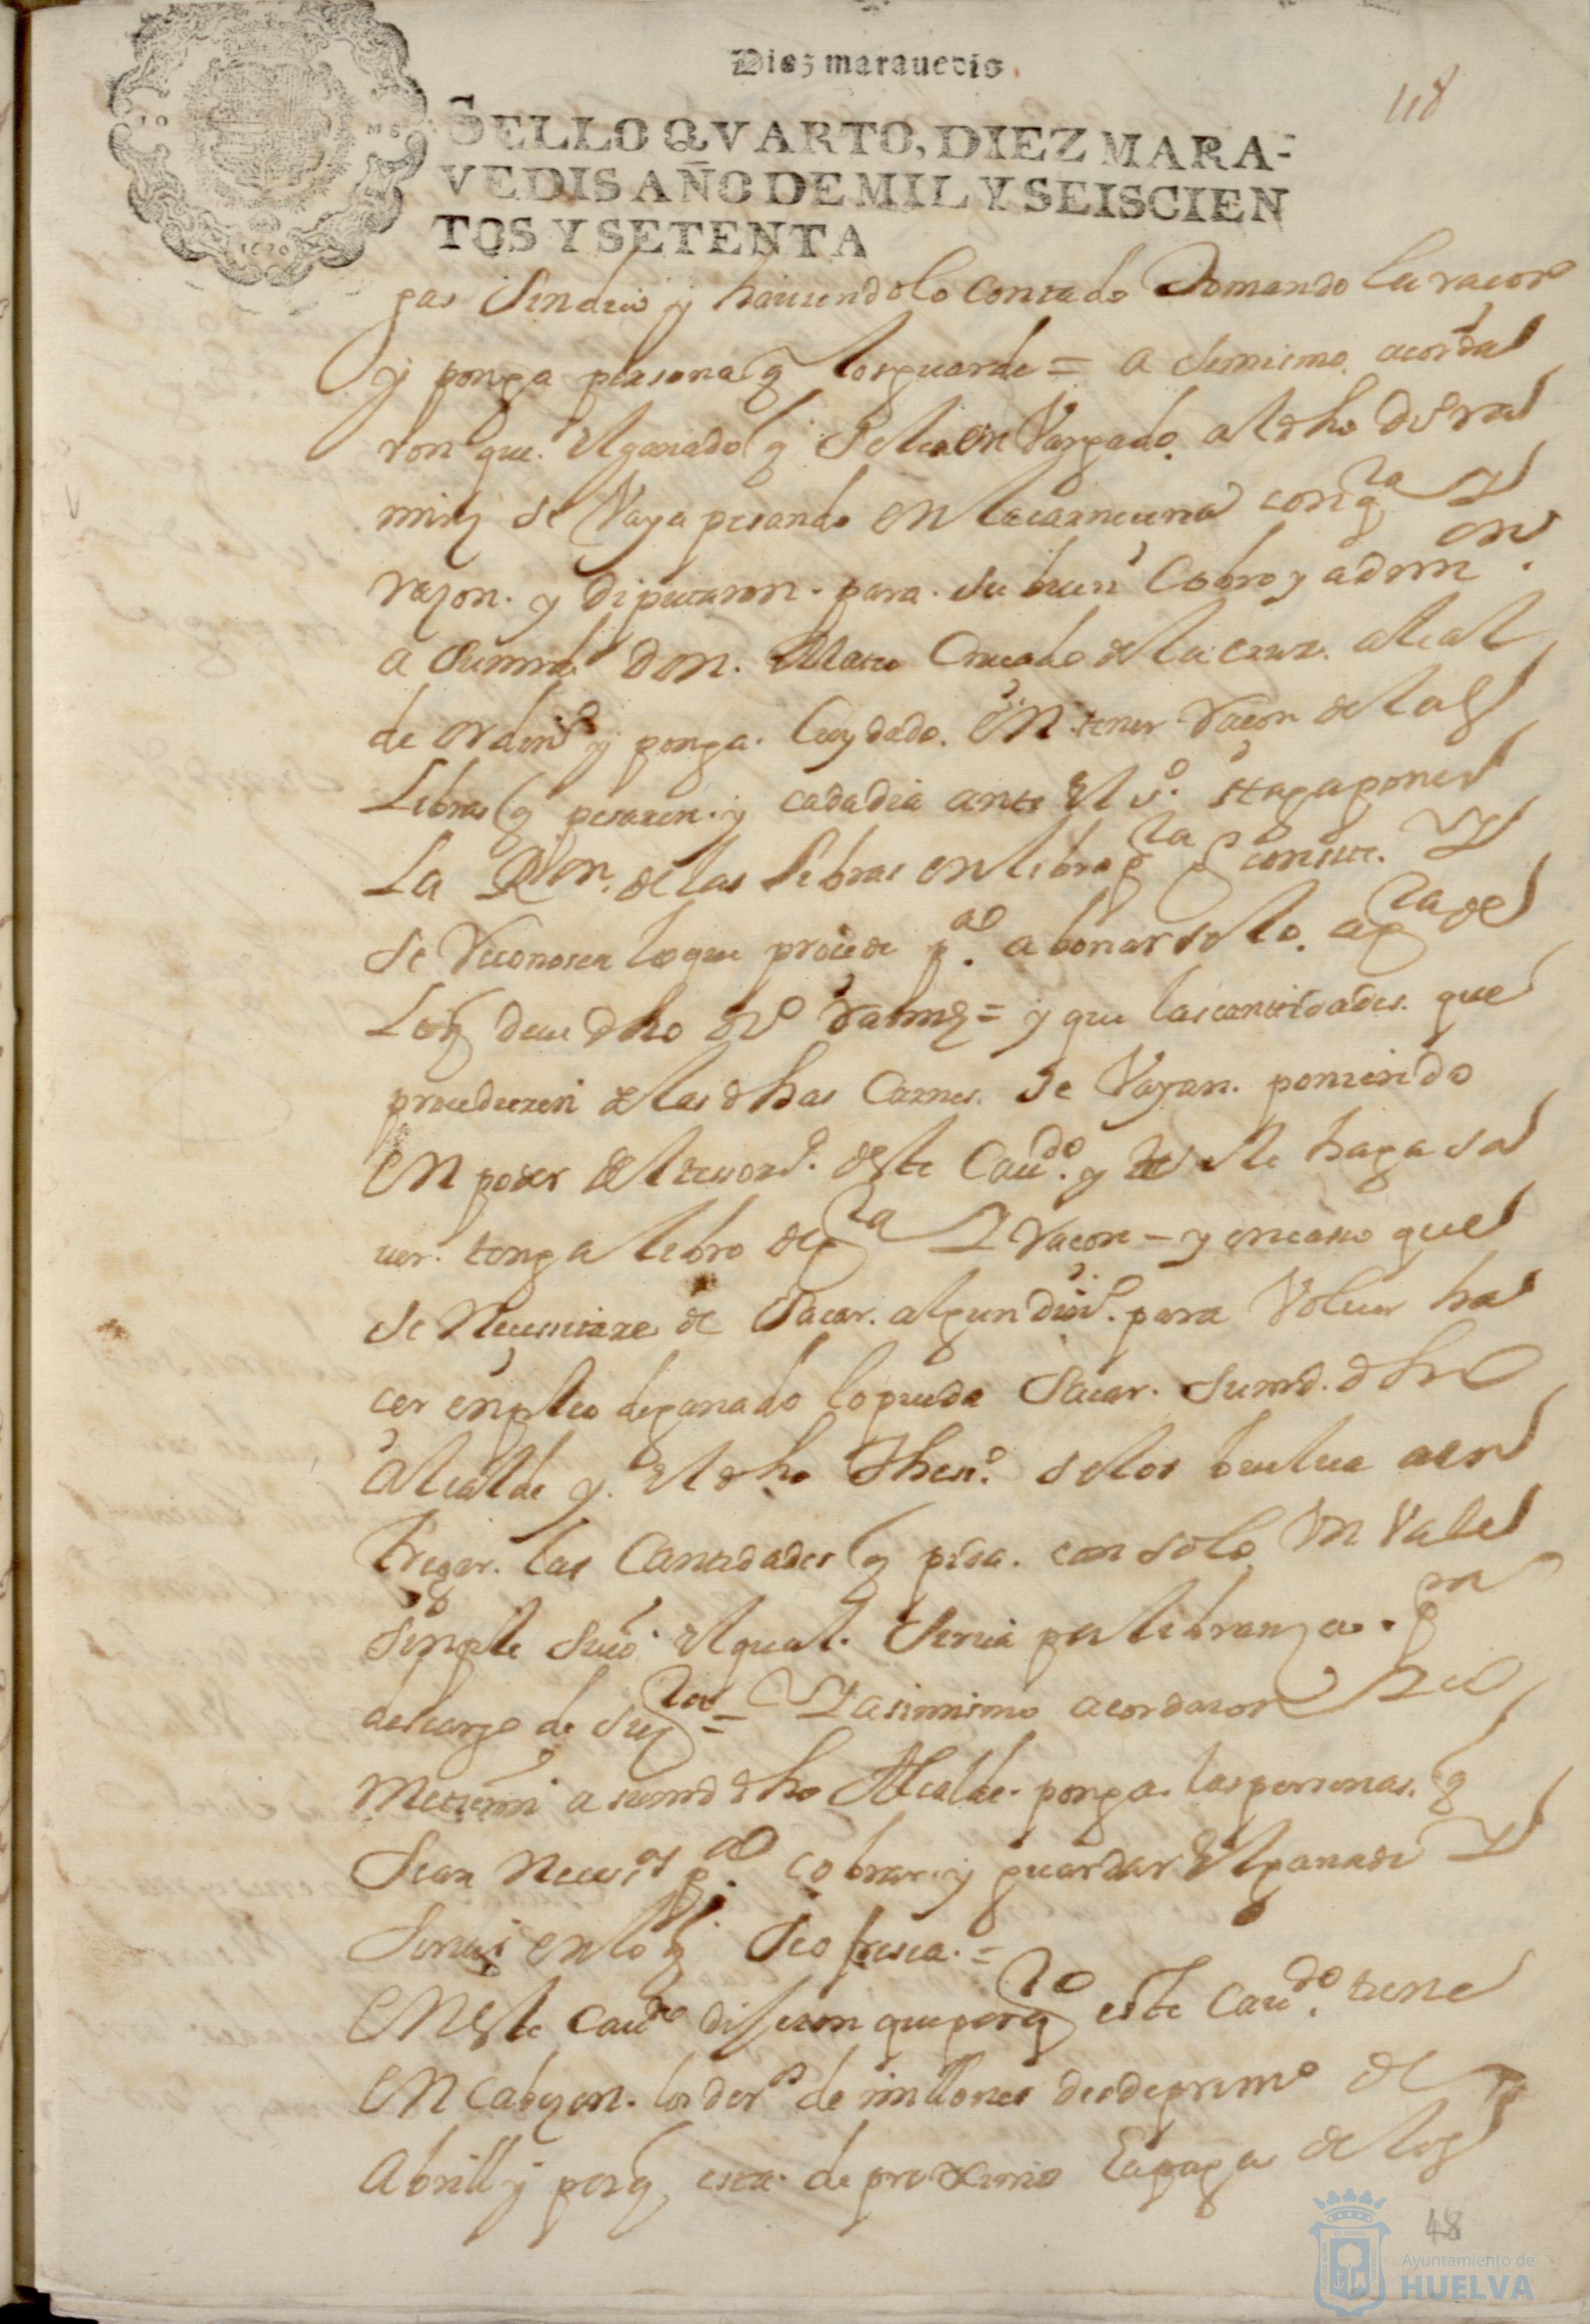 Diez marauedis.
118
SELLO QVARTO, DIEZ MARA-
VEDIS AÑO DE MIL Y SEISCIEN
TOS Y SETENTA
1670
gas Sindico y hauiendolo contado tomando la raçon
y ponga persona q los guarde = a Simismo acorda
ron que el ganado q Se tea en Vargado al dho Diº ra
mirz se Vaya pesando en la carneceria con qta y
razon. y diputaron. para. su buen Cobro y admon.
a Sumrd don. Mateo de la cruz. alcal
de ordinº y ponga. Cuydado. en tener raçon de las
Libras q pesaren. y cada dia ante el sº. haga poner
La Rºn. de las libras en libro qta q conste. y
se reconosca lo que procede pª. abonarselo. a qta de
Lo q deue dho Diº Ramirz = y que las cantidades. que
procedieren de las dhas Carnes. se Vayan. poniendo
en poder del tesorº. deste Caudº. y se le haga sa
uer. tenga libro de qta y raçon – y en caso que
se Necesitare de Sacar. algun dinº. para Voluer ha
cer enpleo de ganado lo pueda Sacar. Sumrd. dho
Alcalde y. el dho thesº. se los buelua a en
tregar. las Cantidades q pida. con solo Un Vale
Sinple Suio. el qual. Sirua por libranza. en
descargo de su qta = Y asimismo acordaron Re
metieron a sumrd dho Alcalde. ponga. las personas. q
Sean Necesºs pª cobrar. y guardar el ganado y
Siruan en lo q Se ofresca. =
En este Caudº dijeron que por qto este Caudº. tiene
en Cabeçon. los derºs de millones desde primº de
Abrill y porq esta. de proximo La paga de los
48
Ayuntamiento de
HUELVA